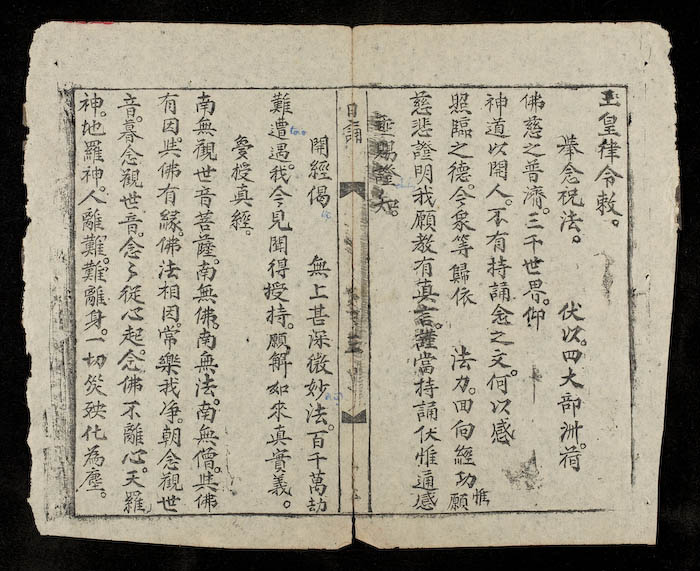 玉皇律令敕。
舉念祝法。 伏以。四大部洲。荷
佛慈之普濟。三千世界。仰
神道以開人。不有持誦念之文。何以感
照臨之德。今衆等歸依 法力。回向經功惟願
慈悲證明。我願教有真言。謹當持誦伏惟通感
垂賜證知。
日誦
開經偈 無上甚深微妙法。百千萬劫
難遭遇。我今見聞得授持。願解如來真實義。
夢授真經。
南無觀世音菩薩。南無佛。南無法。南無僧。與佛
有因。與佛有緣。佛法相因。常樂我净。朝念觀世
音。暮念觀世音。念々從心起。念佛不離心。天羅
神。地羅神。人離難。難離身。一切災殃化為塵。